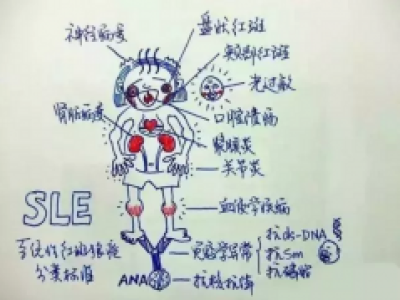 神经病变
盘状红斑
颊部红斑
光过敏
肾脏病变
口腔溃疡
浆膜炎
关节炎
SLE
血液学疾病
系统性红斑狼疮
分类标准
免疫学异常
抗ds-DNA
抗Sm
抗磷脂
ANA
抗核抗体